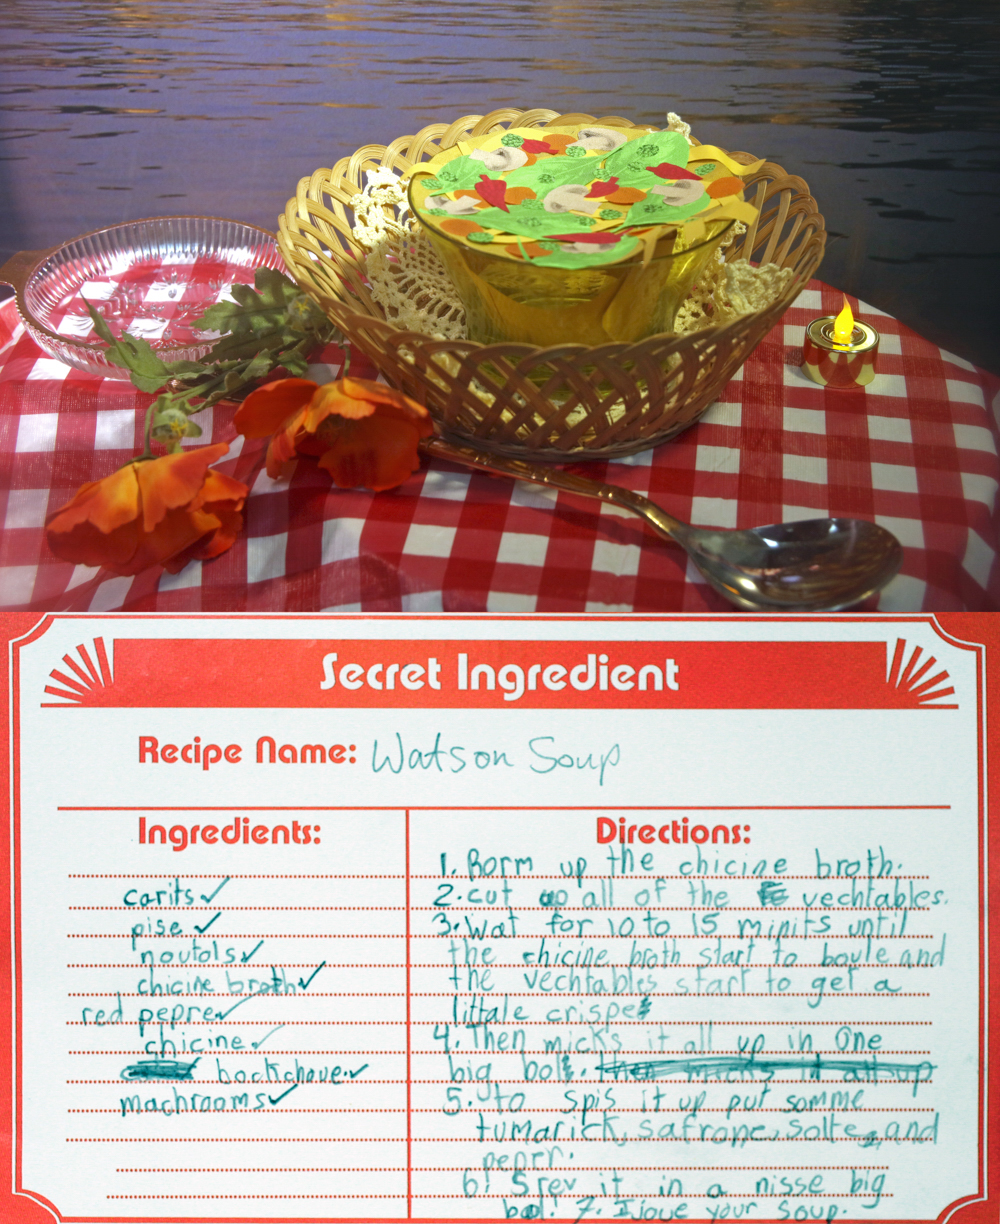 Secret Ingredient
Recipe Name: Watson Soup
Ingredients:
carits✓
pise ✓
noutols✓
chicine broth✓
red pepre✓
chicine✓
bockchoue✓
machrooms✓
Directions:
1. Borm up the chicine broth.
2. cut up all of the vechtables.
3. Wat for 10 to 15 minits until
the chicine broth start to boyle and
the vechtables start to get a
littale crispe
4. Then micks it all up in one
big bol. then micks it all up
5. to spis it up put somme
tumarick, safrone, solte, and
peprr.
6! Srev it in a nisse big
bol! 7. Ijoue your soup.